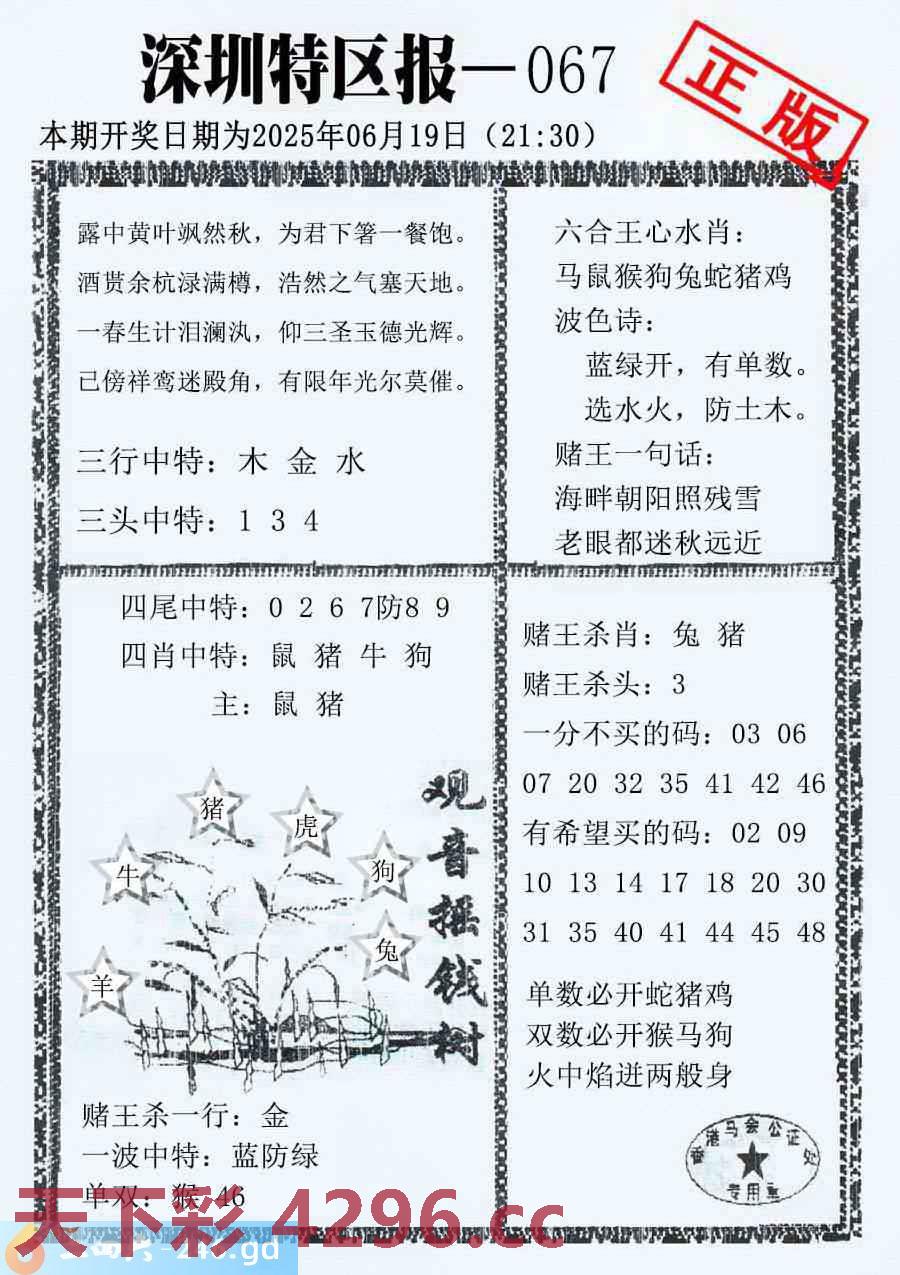 深圳特区报—067
正版
本期开奖日期为2025年06月19日（21:30）
露中黄叶飒然秋，为君下箸一餐饱。
酒贳余杭渌满樽，浩然之气塞天地。
一春生计泪澜汍，仰三圣玉德光辉。
己傍祥鸾迷殿角，有限年光尔莫催。
三行中特：木 金 水
三头中特：1 3 4
六合王心水肖：
马鼠猴狗兔蛇猪鸡
波色诗：
蓝绿开，有单数。
选水火，防土木。
赌王一句话：
海畔朝阳照残雪
老眼都迷秋远近
四尾中特：0 2 6 7防8 9
四肖中特：鼠 猪 牛 狗
主：鼠 猪
猪
虎
牛
狗
兔
羊
观音摇钱树
赌王杀一行：金
一波中特：蓝防绿
单双：猴 46
赌王杀肖：兔 猪
赌王杀头：3
一分不买的码：03 06
07 20 32 35 41 42 46
有希望买的码：02 09
10 13 14 17 18 20 30
31 35 40 41 44 45 48
单数必开蛇猪鸡
双数必开猴马狗
火中焰迸两般身
香港马会公证处
专用章
天下彩 4296.cc
-246.gd